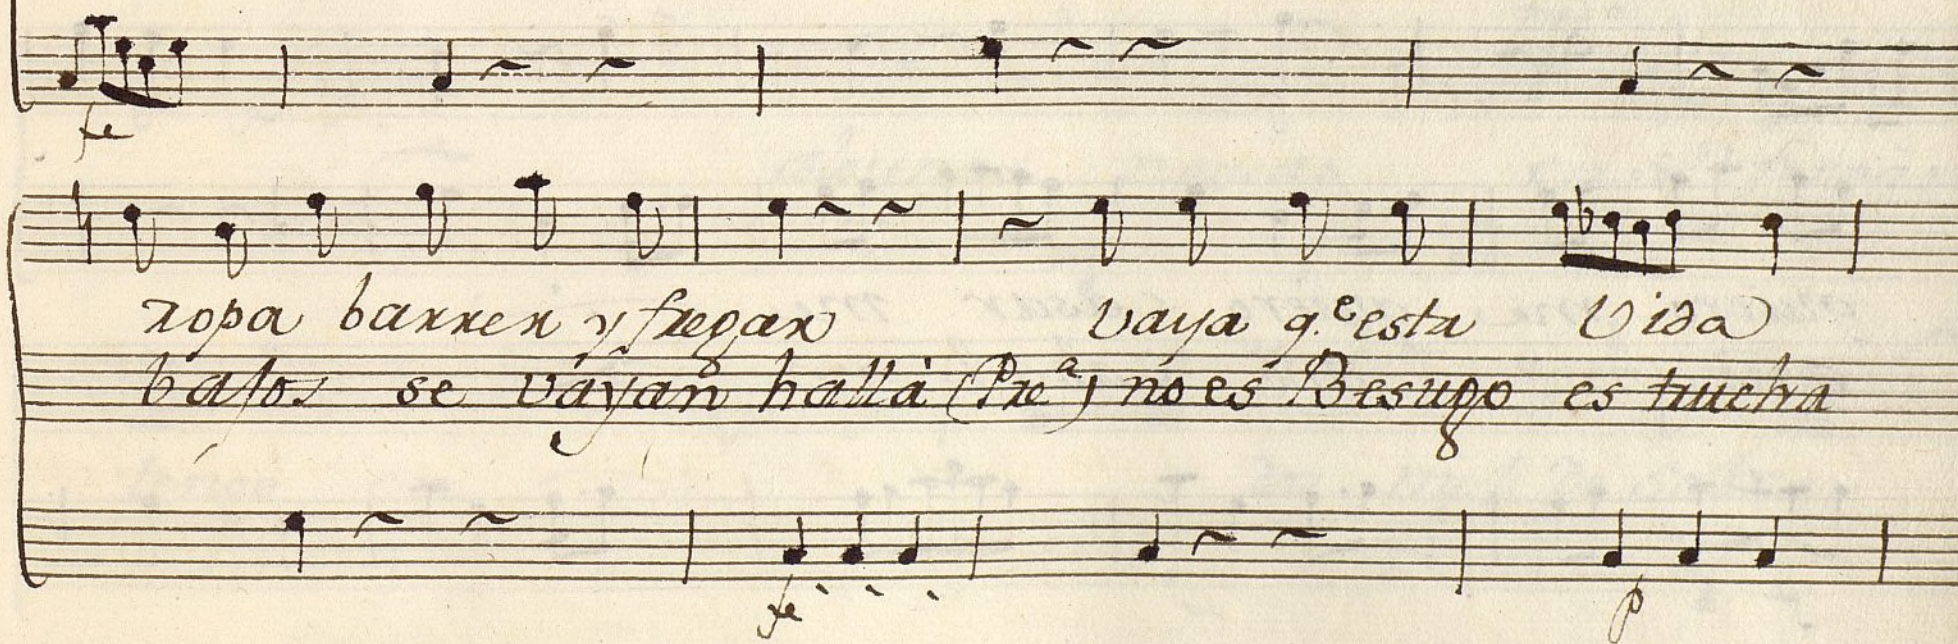 fe
ropa barrer y fregar vaya q.e esta Vida
bajos se váyan hallá (Pre.a) no es Besugo es trucha
fe p